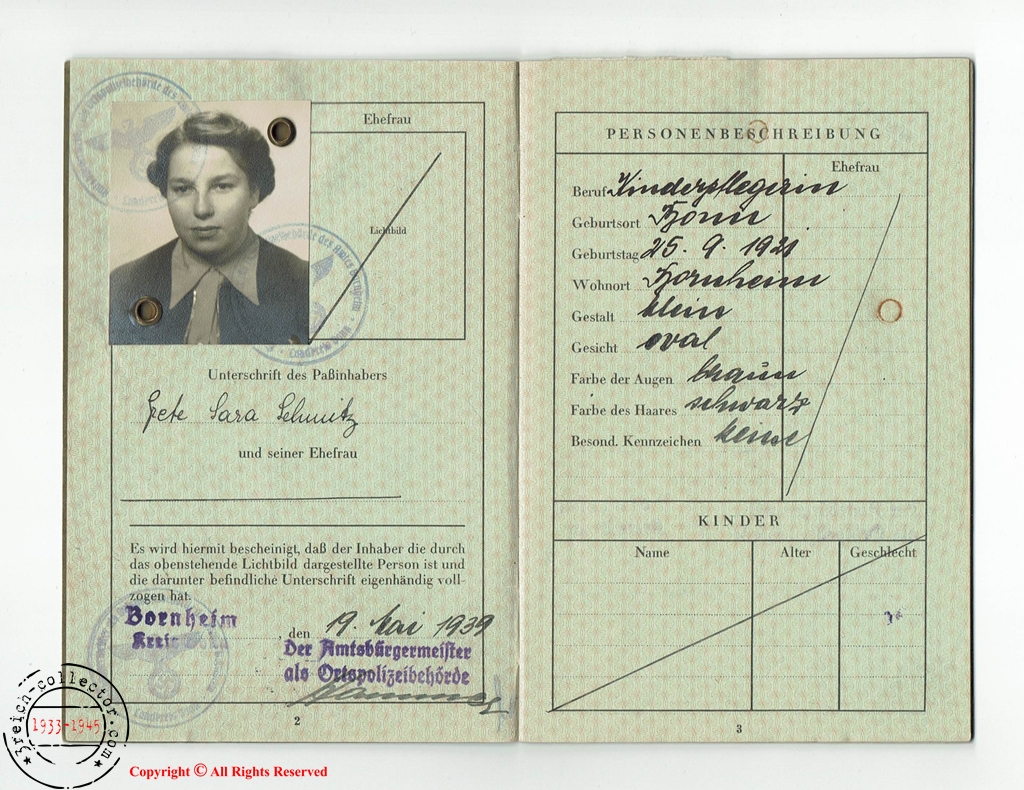 Ehefrau
Lichtbild
Unterschrift des Paßinhabers
Grete Sara Schmitz
und seiner Ehefrau
Es wird hiermit bescheinigt, daß der Inhaber die durch
das obenstehende Lichtbild dargestellte Person ist und
die darunter befindliche Unterschrift eigenhändig voll-
zogen hat.
Bornheim
Kreis
, den 19. Mai 1939
Der Amtsbürgermeister
als Ortspolizeibehörde
2
PERSONENBESCHREIBUNG
Ehefrau
Beruf Kinderpflegerin
Geburtsort Bonn
Geburtstag 25. 9. 1921
Wohnort Bornheim
Gestalt klein
Gesicht oval
Farbe der Augen braun
Farbe des Haares schwarz
Besond. Kennzeichen keine
KINDER
Name Alter Geschlecht
3
3reich-collector.com
1933-1945
Copyright © All Rights Reserved